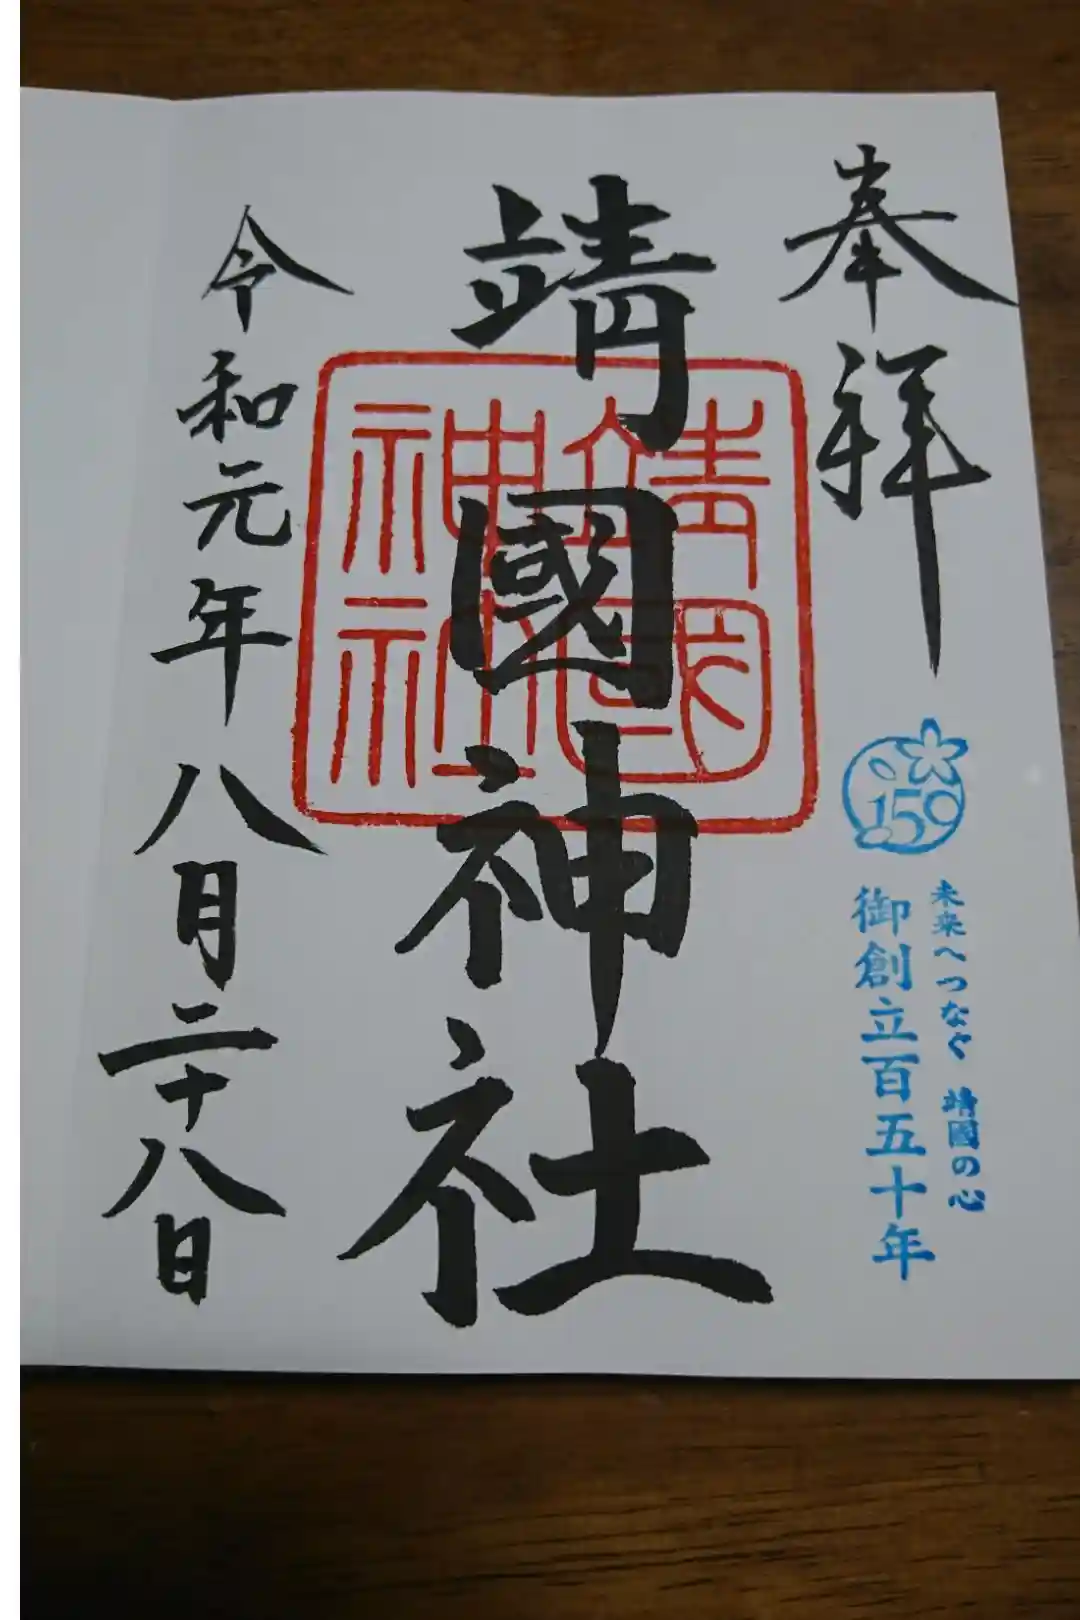 奉拝
150
未来へつなぐ 靖國の心
御創立百五十年
靖國神社
靖國
神社
令和元年八月二十八日